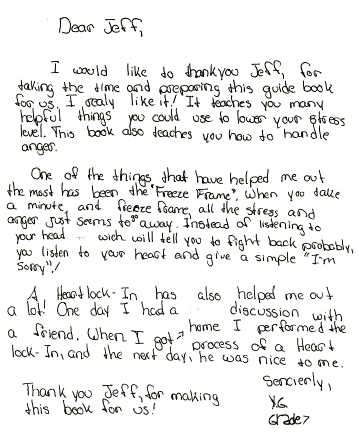 Dear Jeff,
I would like to thankyou Jeff, for
taking the time and preparing this guide book
for us. I realy like it! It teaches you many
helpful things you could use to lower your stress
level. This book also teaches you how to handle
anger.
One of the things that have helped me out
the most has been the "Freeze Frame". When you take
a minute, and freeze frame, all the stress and
anger just seems to go away. Instead of listening to
your head wich will tell you to fight back probably,
you listen to your heart and give a simple "I'm
Sorry"!
A Heart lock-In has also helped me out
a lot! One day I had a discussion with
a friend. When I got home I performed the
process of a Heart
lock-In, and the next day, he was nice to me.
Sencierly,
Thank you Jeff, for making
this book for us!
Y.G
Grade 7